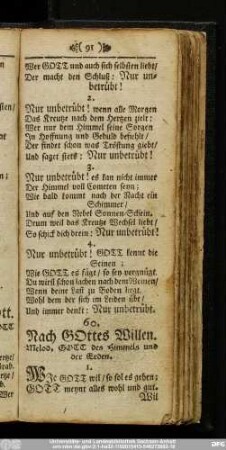 (91)
Wer GOTT und auch sich selbsten liebt/
Der macht den Schluß: Nur un-
betrübt!
2.
Nur unbetrübt! wenn alle Morgen
Das Kreutze nach dem Hertzen zielt:
Wer nur dem Himmel seine Sorgen
In Hoffnung und Gedult befiehlt/
Der findet schon was Tröstung giebt/
Und saget stets: Nur unbetrübt!
3.
Nur unbetrübt! es kan nicht immer
Der Himmel voll Cometen seyn;
Wie bald kommt nach der Nacht ein
Schimmer/
Und auf den Nebel Sonnen-Schein.
Drum weil das Kreutze Wechsel liebt/
So schick dich drein: Nur unbetrübt!
4.
Nur unbetrübt! GOTT kennt die
Seinen:
Wie GOTT es fügt/ so sey vergnügt.
Du wirst schon lachen nach dem Weinen/
Wenn deine Last zu Boden liegt.
Wohl dem der sich im Leiden übt/
Und immer denkt: Nur unbetrübt.
60.
Nach GOttes Willen.
Melod. GOTT des Himmels und
der Erden.
1.
WIe GOTT wil/ so sol es gehen;
GOTT meynt alles wohl und gut.
Wil